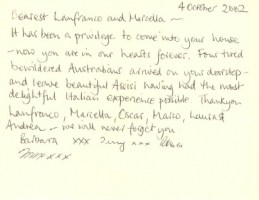 4 October 2002
Dearest Lanfranco and Marcella ~
It has been a privilege to come into your house
- now you are in our hearts forever. Four tired
bewildered Australians arrived on your doorstep -
and leave beautiful Assisi having had the most
delightful Italian experience possible. Thankyou
Lanfranco, Marcella, Oscar, Marco, Laura &
Andrea - we will never forget you
Barbara xxx xxx
xxx